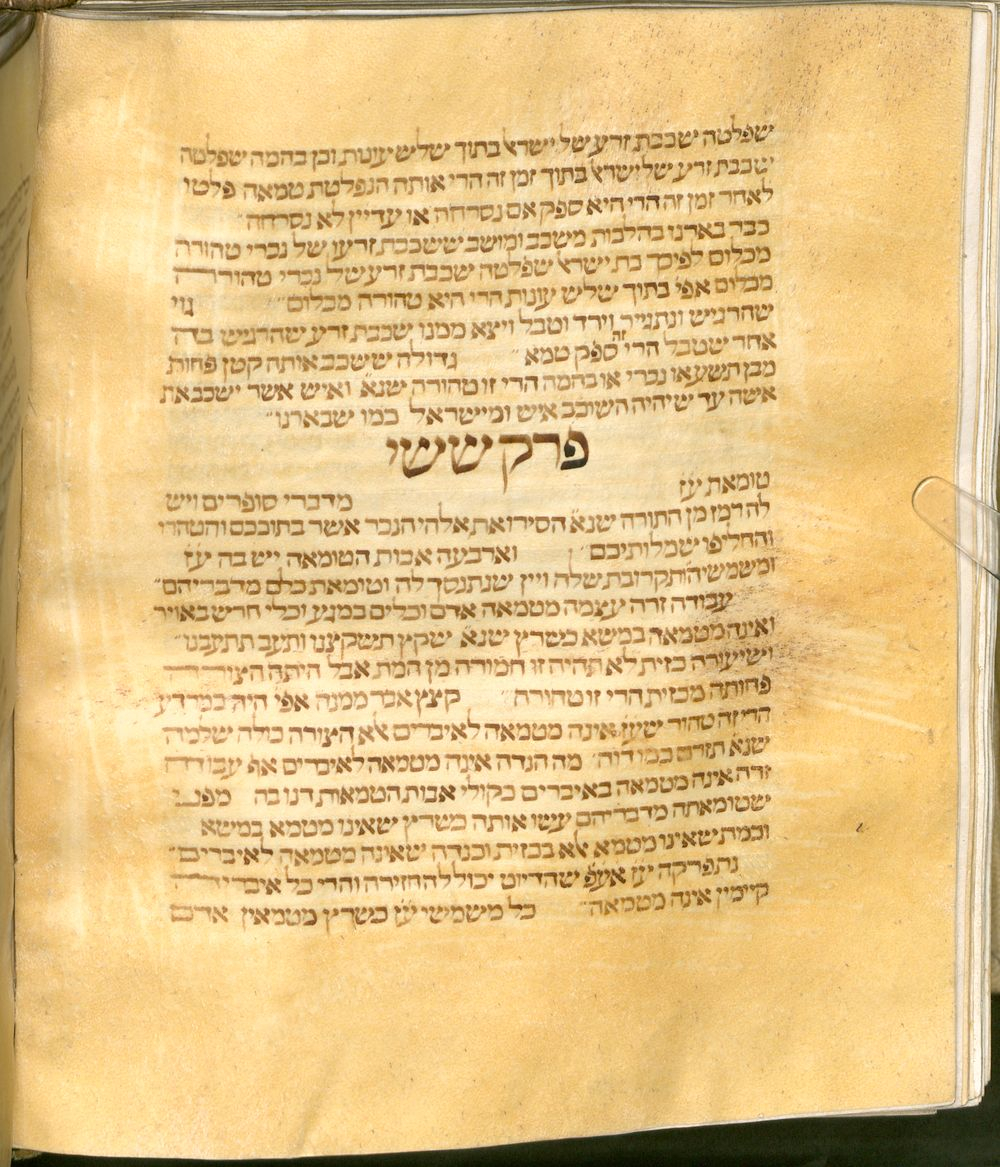 שפלטה שכבת זרע של ישראל בתוך שלש עונות וכן בהמה שפלטה
שכבת זרע של ישראל בתוך זמן זה הרי אותה הנפלטת טמאה פלטו
לאחר זמן זה הרי היא ספק אם נסרחה או עדיין לא נסרחה״
כבר בארנו בהלכות משכב ומושב ששכבת זרעו של נכרי טהורה
מכלום לפיכך בת ישראל שפלטה שכבת זרע של נכרי טהורה
מכלום אפי׳ בתוך שלש עונות הרי היא טהורה מכלום״ גוי
שהרגיש ונתגייר וירד וטבל ויצא ממנו שכבת זרע שהרגיש בה
אחר שטבל הרי זה ספק טמא״ גדולה ששכב אותה קטן פחות
מבן תשע או נכרי או בהמה הרי זו טהורה שנא׳ ואיש אשר ישכב את
אשה עד שיהיה השוכב איש ומישראל כמו שבארנו״
פרק ששי
טומאת ע׳ז׳ מדברי סופרים ויש
לה רמז מן התורה שנא׳ הסירו את אלהי הנכר אשר בתוככם והטהרו
והחליפו שמלותיכם״ וארבעה אבות הטומאה יש בה ע׳ז׳
ומשמשיה ותקרובת שלה ויין שנתנסך לה וטומאת כלם מדבריהם״
עבודה זרה עצמה מטמאה אדם וכלים במגע וכלי חרש באויר
ואינה מטמאה במשא כשרץ שנא׳ שקץ תשקצנו ותעב תתעבנו״
ושיעורה כזית לא תהיה זו חמורה מן המת אבל היתה הצורה
פחותה מכזית הרי זו טהורה״ קצץ אבר ממנה אפי׳ היה כמרדע
הרי זה טהור שע׳ז׳ אינה מטמאה לאיברים אלא הצורה כולה שלמה
שנא׳ תזרם כמו דוה׳ מה הנדה אינה מטמאה לאיברים אף עבודה
זרה אינה מטמאה באיברים בקולי אבות הטמאות דנו בה מפני
שטומאתה מדבריהם עשו אותה כשרץ שאינו מטמא במשא
וכמת שאינו מטמא אלא בכזית וכנדה שאינה מטמאה לאיברים״
נתפרקה ע׳ז׳ אע׳פ׳ שהדיוט יכול להחזירה והרי כל איבריה
קיימין אינה מטמאה״ כל משמשי ע׳ז׳ כשרץ מטמאין אדם